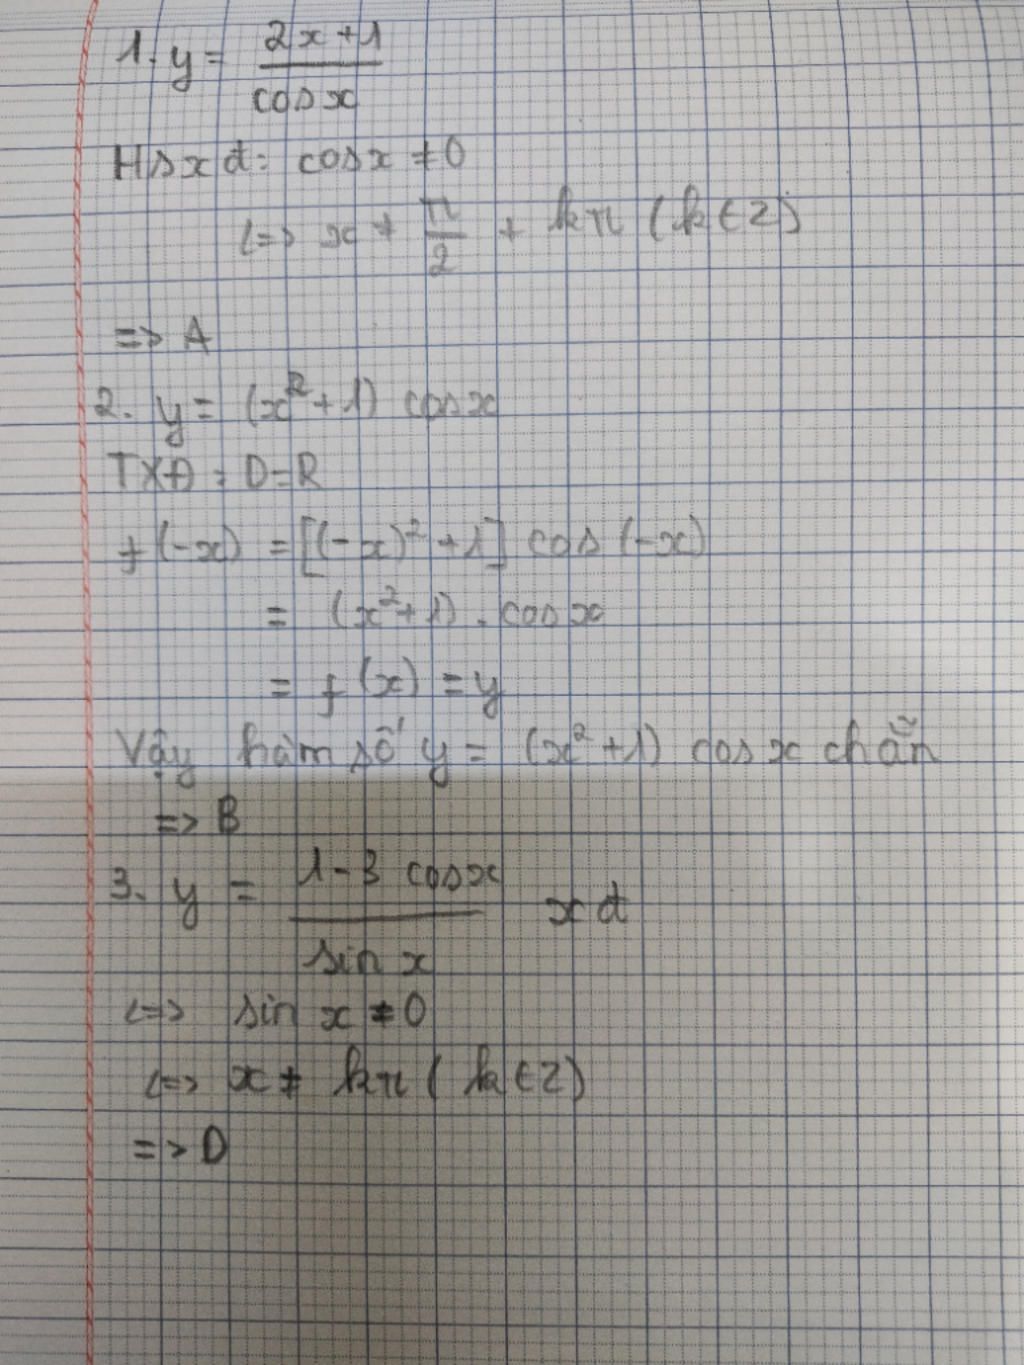 1. y = 2x+1 / cosx
Hsxđ: cosx ≠ 0
<=> x ≠ π/2 + kπ (k∈Z)
=> A
2. y = (x²+1) cosx
TXĐ: D=R
f(-x) = [(-x)²+1] cos(-x)
= (x²+1). cosx
= f(x) = y
Vậy hàm số y = (x²+1) cosx chẵn
=> B
3. y = 1-3 cosx / sin x xđ
<=> sin x ≠ 0
<=> x ≠ kπ (k∈Z)
=> D